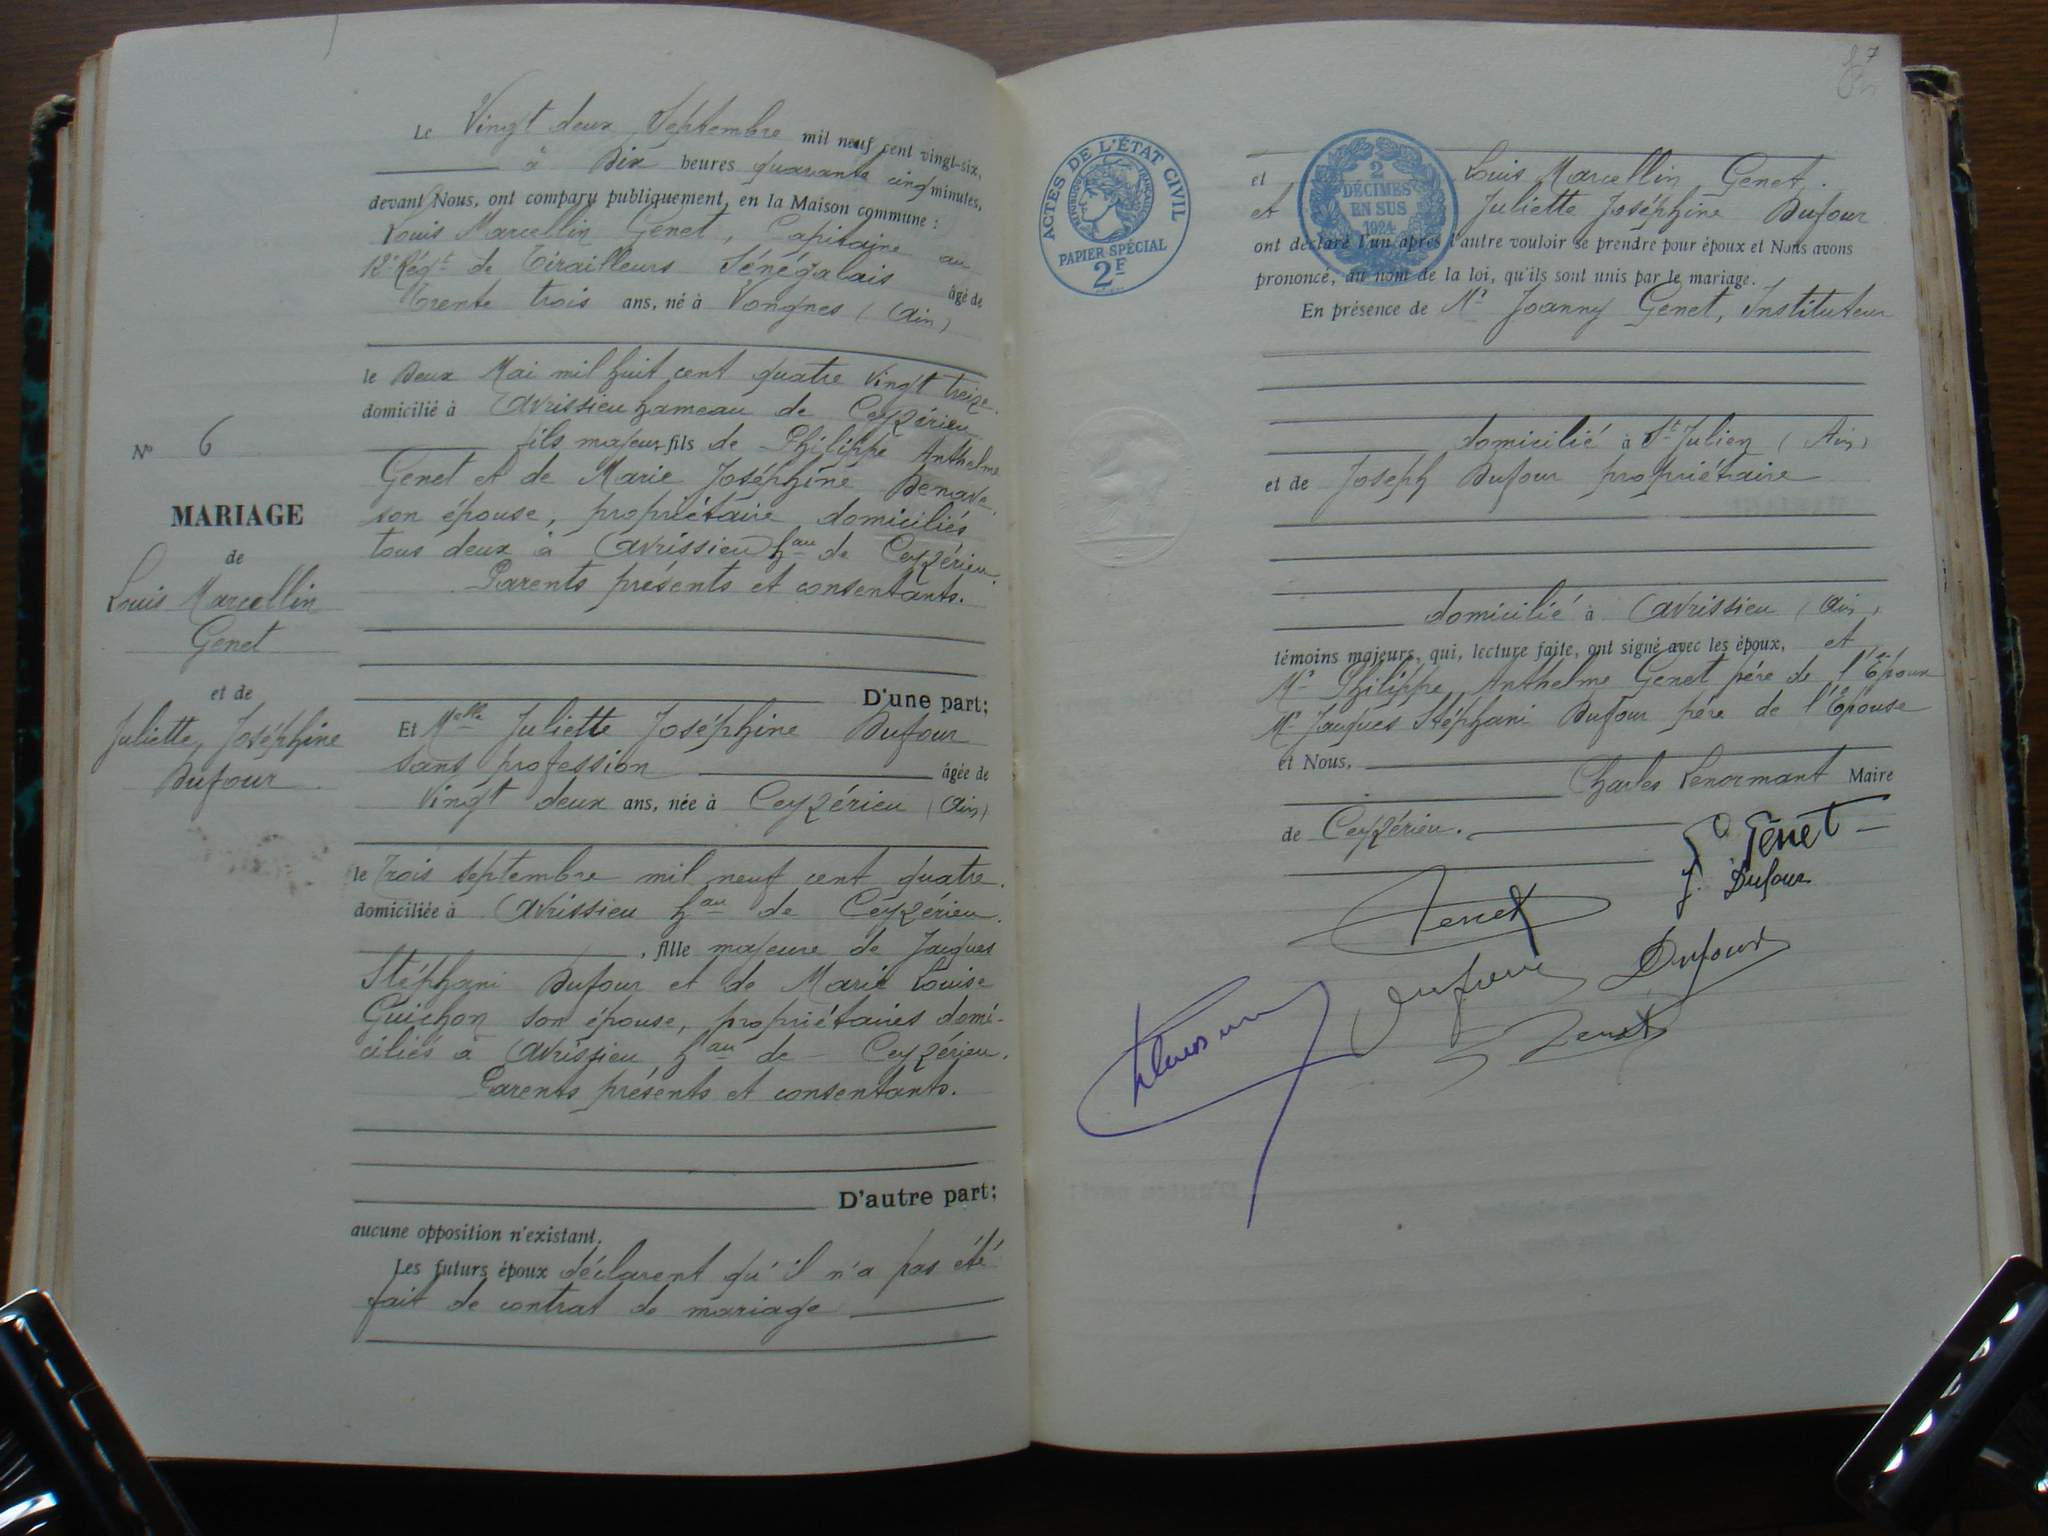 Le Vingt deux Septembre mil neuf cent vingt-six,
à Dix heures quarante cinq minutes,
devant Nous, ont comparu publiquement, en la Maison commune :
Louis Marcellin Genet, Capitaine au
12e Régt de Tirailleurs Sénégalais âgé de
Trente trois ans, né à Vongnes (Ain)
le Deux Mai mil huit cent quatre vingt treize.
domicilié à Avrissieu hameau de Ceyzérieu
fils majeur, fils de Philippe Anthelme
Genet et de Marie Joséphine
son épouse, propriétaire domiciliés
tous deux à Avrissieu hau de Ceyzérieu.
Parents présents et consentants.
D'une part;
Et Melle Juliette Joséphine Dufour
sans profession âgée de
Vingt deux ans, née à Ceyzérieu (Ain)
le Trois septembre mil neuf cent quatre.
domiciliée à Avrissieu hau de Ceyzérieu.
, fille majeure de Jacques
Stéphani Dufour et de Marie Louise
Guichon son épouse, propriétaires domi-
ciliés à Avrissieu hau de Ceyzérieu.
Parents présents et consentants.
D'autre part;
aucune opposition n'existant.
Les futurs époux déclarent qu'il n'a pas été
fait de contrat de mariage
No 6
MARIAGE
de
Louis Marcellin
Genet
et de
Juliette, Joséphine
Dufour
7
ACTES DE L'ÉTAT CIVIL
RÉPUBLIQUE FRANÇAISE
PAPIER SPÉCIAL
2F
2
DÉCIMES
EN SUS
1924
et Louis Marcellin Genet.
et Juliette Joséphine Dufour
ont déclaré l'un après l'autre vouloir se prendre pour époux et Nous avons
prononcé, au nom de la loi, qu'ils sont unis par le mariage.
En présence de Mr Joanny Genet, Instituteur
domicilié à St Julien (Ain)
et de Joseph Dufour propriétaire
domicilié à Avrissieu (Ain)
témoins majeurs, qui, lecture faite, ont signé avec les époux, et
Mr Philippe Anthelme Genet père de l'Époux
Mr Jacques Stéphani Dufour père de l'Épouse
et Nous,
Charles Lenormant Maire
de Ceyzérieu.
Genet
J. Dufour
Genet
Dufour
Dufour
Genet